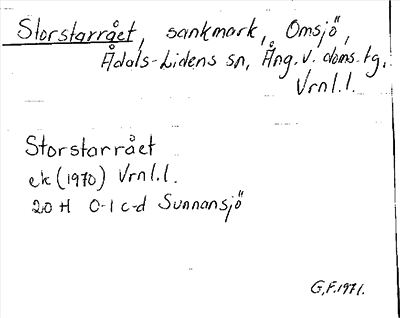 Storstarrået, sankmark, Omsjö,
Ådals-Lidens sn, Ång. v. doms. tg.
Vrnl.l.
Storstarrået
ek (1970) Vrnl.l.
20 H 0-1 c-d Sunnansjö
G.F. 1971.